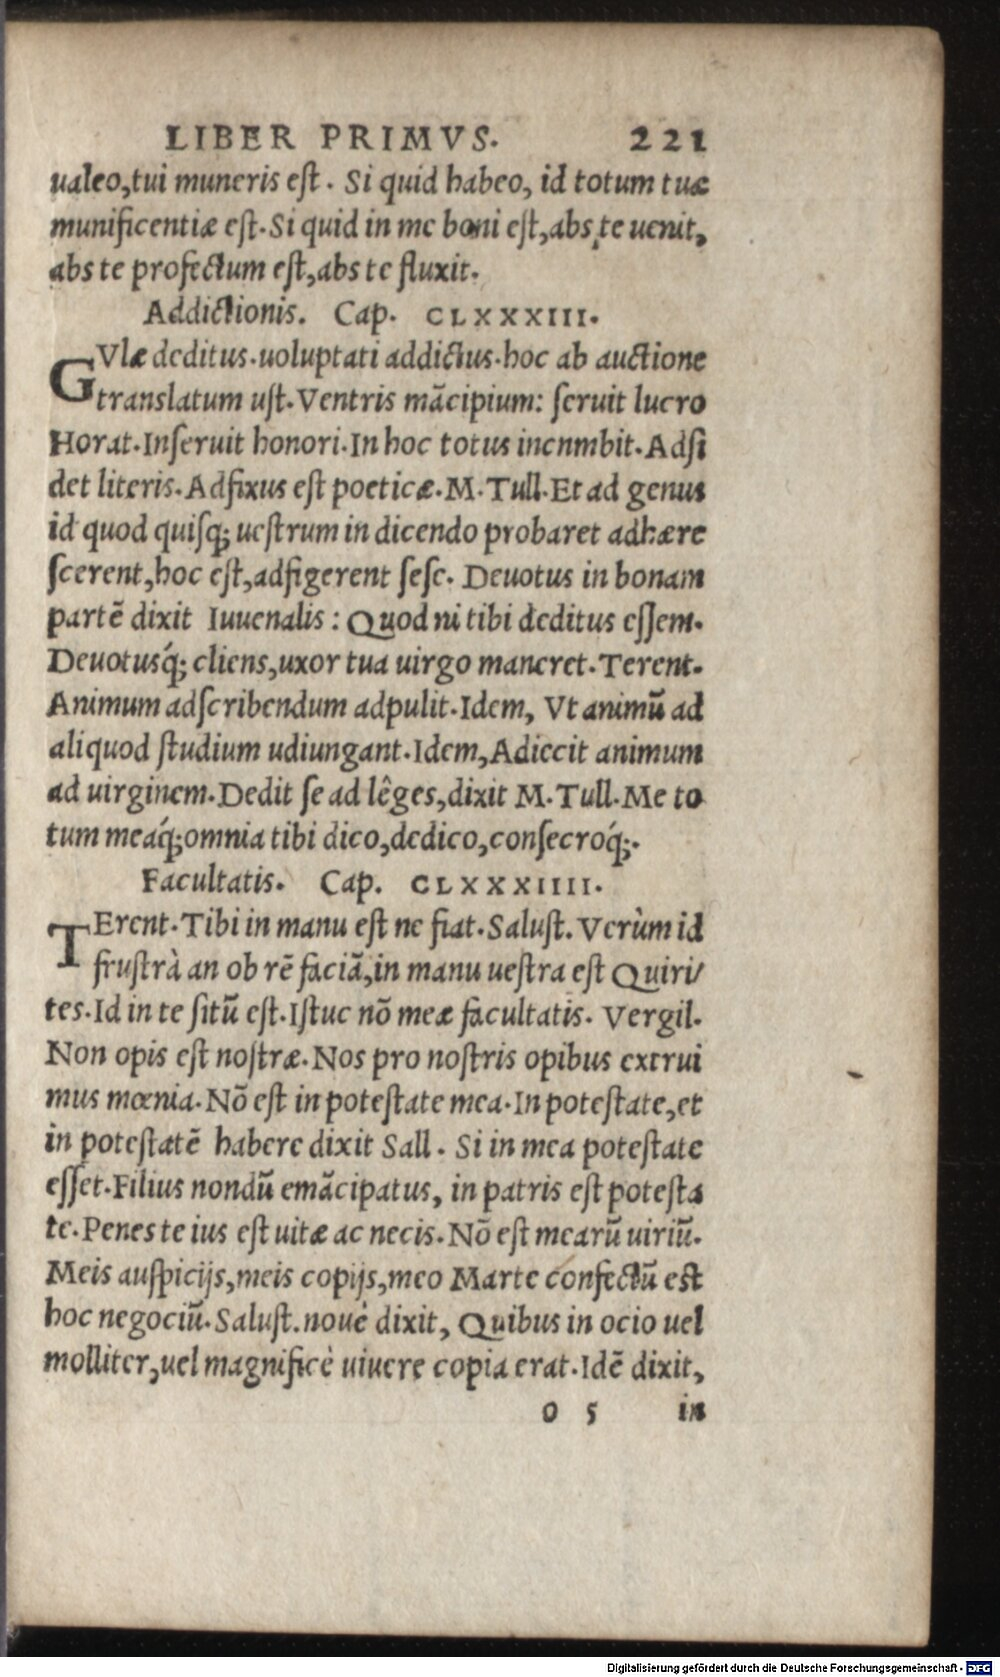 LIBER PRIMVS. 221
ualeo, tui muneris est. Si quid habeo, id totum tuæ
munificentiæ est. Si quid in me boni est, abs te uenit,
abs te profectum est, abs te fluxit.
Addictionis. Cap. CLXXXIII.
GVlæ deditus. uoluptati addictus. hoc ab auctione
translatum ust. Ventris mācipium: seruit lucro
Horat. Inseruit honori. In hoc totus incnmbit. Adsi
det literis. Adfixus est poeticæ. M. Tull. Et ad genus
id quod quisq; uestrum in dicendo probaret adhære
scerent, hoc est, adfigerent sese. Deuotus in bonam
partē dixit Iuuenalis: Quod ni tibi deditus essem.
Deuotusq́; cliens, uxor tua uirgo maneret. Terent.
Animum adscribendum adpulit. Idem, Vt animū ad
aliquod studium udiungant. Idem, Adiecit animum
ad uirginem. Dedit se ad lêges, dixit M. Tull. Me to
tum meaq́; omnia tibi dico, dedico, consecroq́;.
Facultatis. Cap. CLXXXIIII.
TErent. Tibi in manu est ne fiat. Salust. Verùm id
frustrà an ob rē faciā, in manu uestra est Quiri/
tes. Id in te sitū est. Istuc nō meæ facultatis. Vergil.
Non opis est nostræ. Nos pro nostris opibus extrui
mus mœnia. Nō est in potestate mea. In potestate, et
in potestatē habere dixit Sall. Si in mea potestate
esset. Filius nondū emācipatus, in patris est potesta
te. Penes te ius est uitæ ac necis. Nō est mearū uiriū.
Meis auspicijs, meis copijs, meo Marte confectū est
hoc negociū. Salust. nouè dixit, Quibus in ocio uel
molliter, uel magnificè uiuere copia erat. Idē dixit,
o 5 in
Digitalisierung gefördert durch die Deutsche Forschungsgemeinschaft - DFG